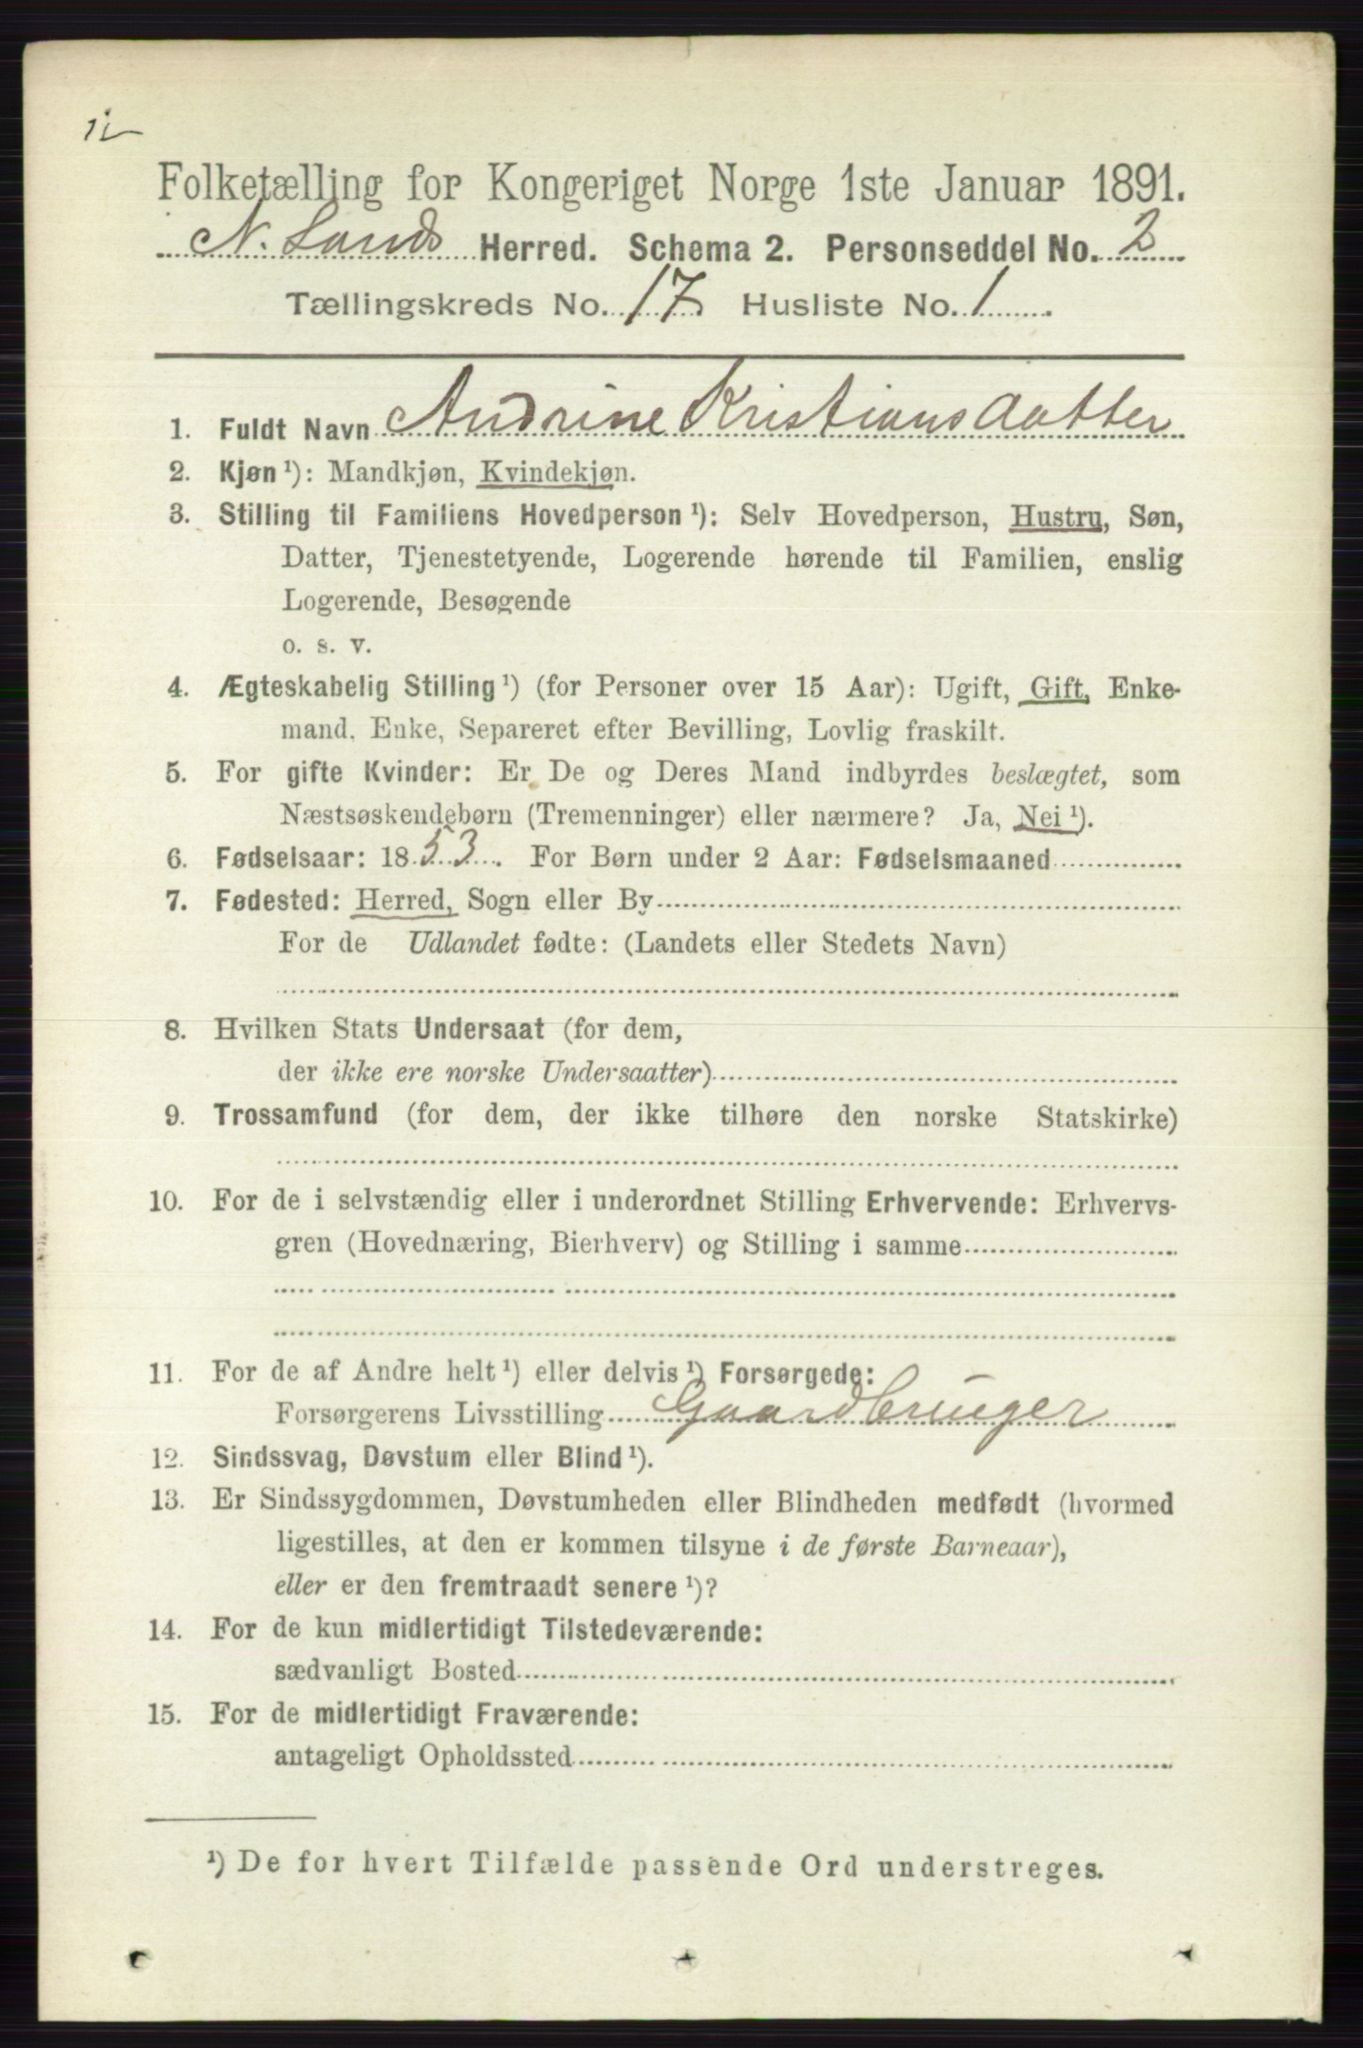 12
Folketælling for Kongeriget Norge 1ste Januar 1891.
N. Lands Herred. Schema 2. Personseddel No. 2
Tællingskreds No. 17 Husliste No. 1
1. Fuldt Navn Andrine Kristiansdatter
2. Kjøn ¹): Mandkjøn, Kvindekjøn.
3. Stilling til Familiens Hovedperson ¹): Selv Hovedperson, Hustru, Søn,
Datter, Tjenestetyende, Logerende hørende til Familien, enslig
Logerende, Besøgende
o. s. v.
4. Ægteskabelig Stilling ¹) (for Personer over 15 Aar): Ugift, Gift, Enke-
mand, Enke, Separeret efter Bevilling, Lovlig fraskilt.
5. For gifte Kvinder: Er De og Deres Mand indbyrdes beslægtet, som
Næstsøskendebørn (Tremenninger) eller nærmere? Ja, Nei ¹).
6. Fødselsaar: 1853. For Børn under 2 Aar: Fødselsmaaned
7. Fødested: Herred, Sogn eller By
For de Udlandet fødte: (Landets eller Stedets Navn)
8. Hvilken Stats Undersaat (for dem,
der ikke ere norske Undersaatter)
9. Trossamfund (for dem, der ikke tilhøre den norske Statskirke)
10. For de i selvstændig eller i underordnet Stilling Erhvervende: Erhvervs-
gren (Hovednæring, Bierhverv) og Stilling i samme
11. For de af Andre helt ¹) eller delvis ¹) Forsørgede:
Forsørgerens Livsstilling Gaardbruger
12. Sindssvag, Døvstum eller Blind ¹).
13. Er Sindssygdommen, Døvstumheden eller Blindheden medfødt (hvormed
ligestilles, at den er kommen tilsyne i de første Barneaar),
eller er den fremtraadt senere ¹)?
14. For de kun midlertidigt Tilstedeværende:
sædvanligt Bosted
15. For de midlertidigt Fraværende:
antageligt Opholdssted
¹) De for hvert Tilfælde passende Ord understreges.